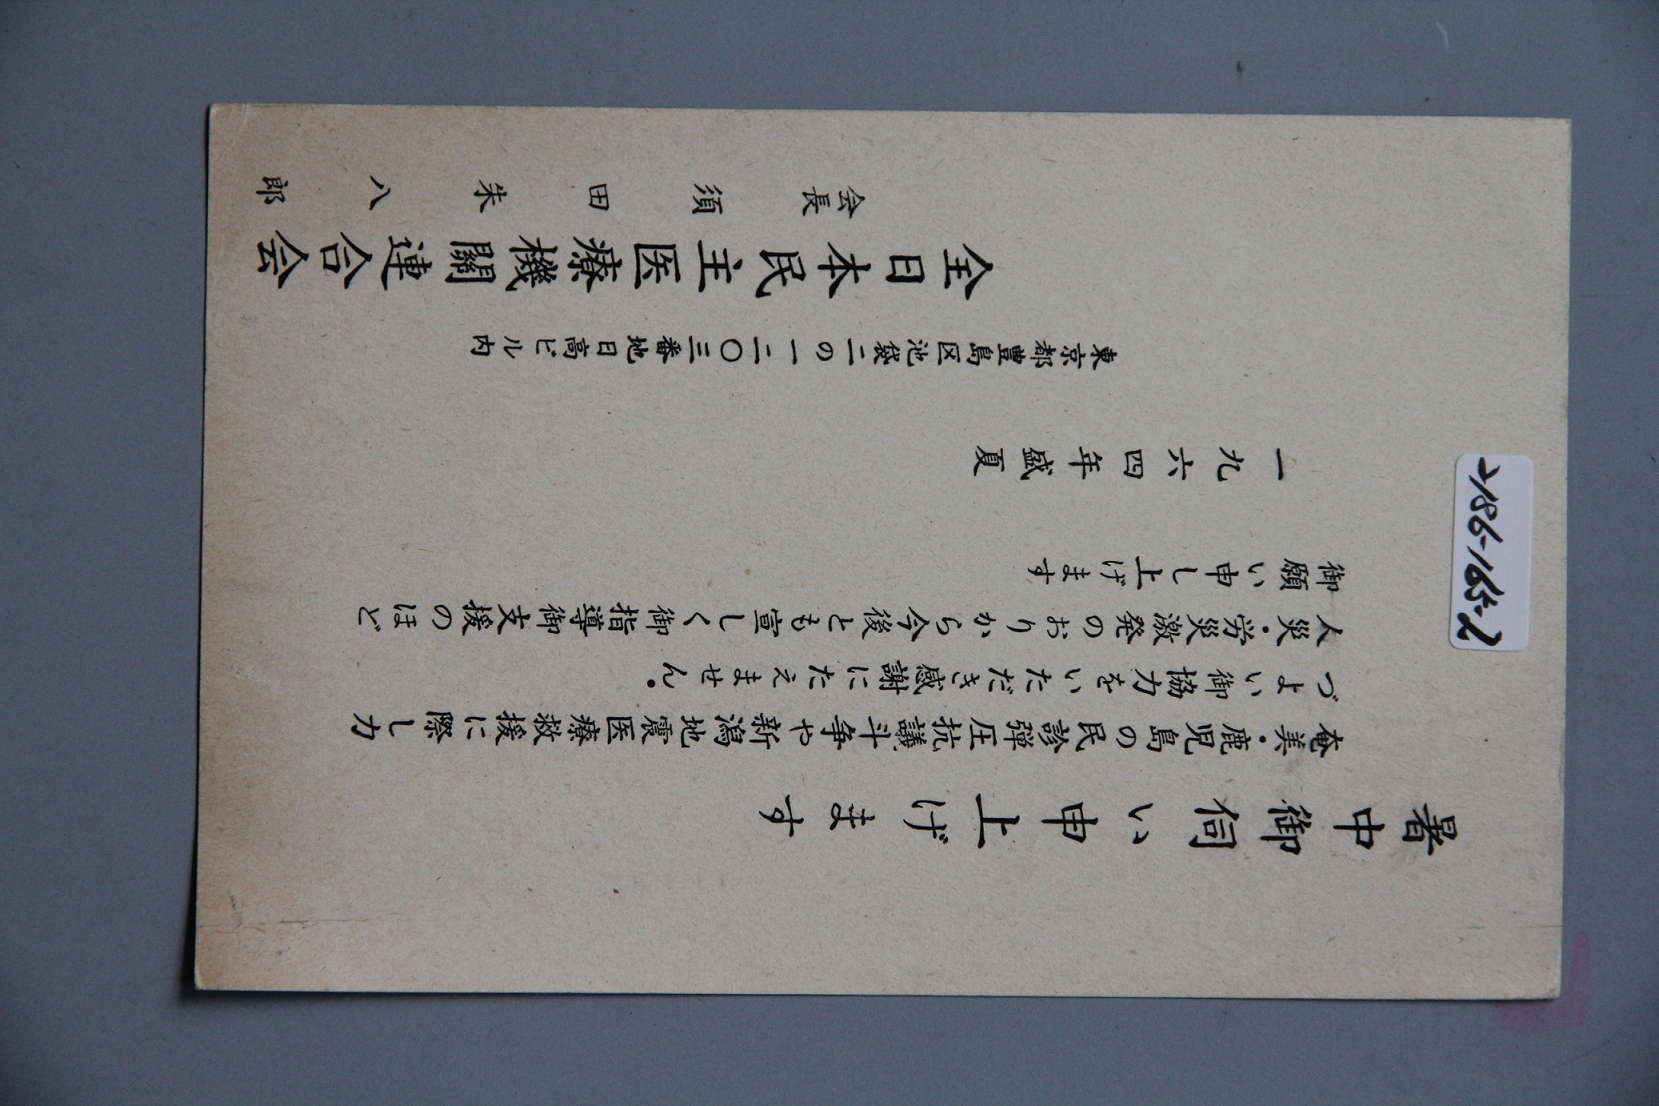 暑中御伺い申上げます
奄美・鹿児島の民診弾圧抗議斗争や新潟地震医療救援に際し力
づよい御協力をいただき感謝にたえません。
人災・労災激発のおりから今後とも宣しく御指導御支援のほど
御願い申し上げます
一九六四年盛夏
東京都豊島区池袋二の一二〇三番地日高ビル内
全日本民主医療機關連合会
会長 須田朱八郎
2186-165-2